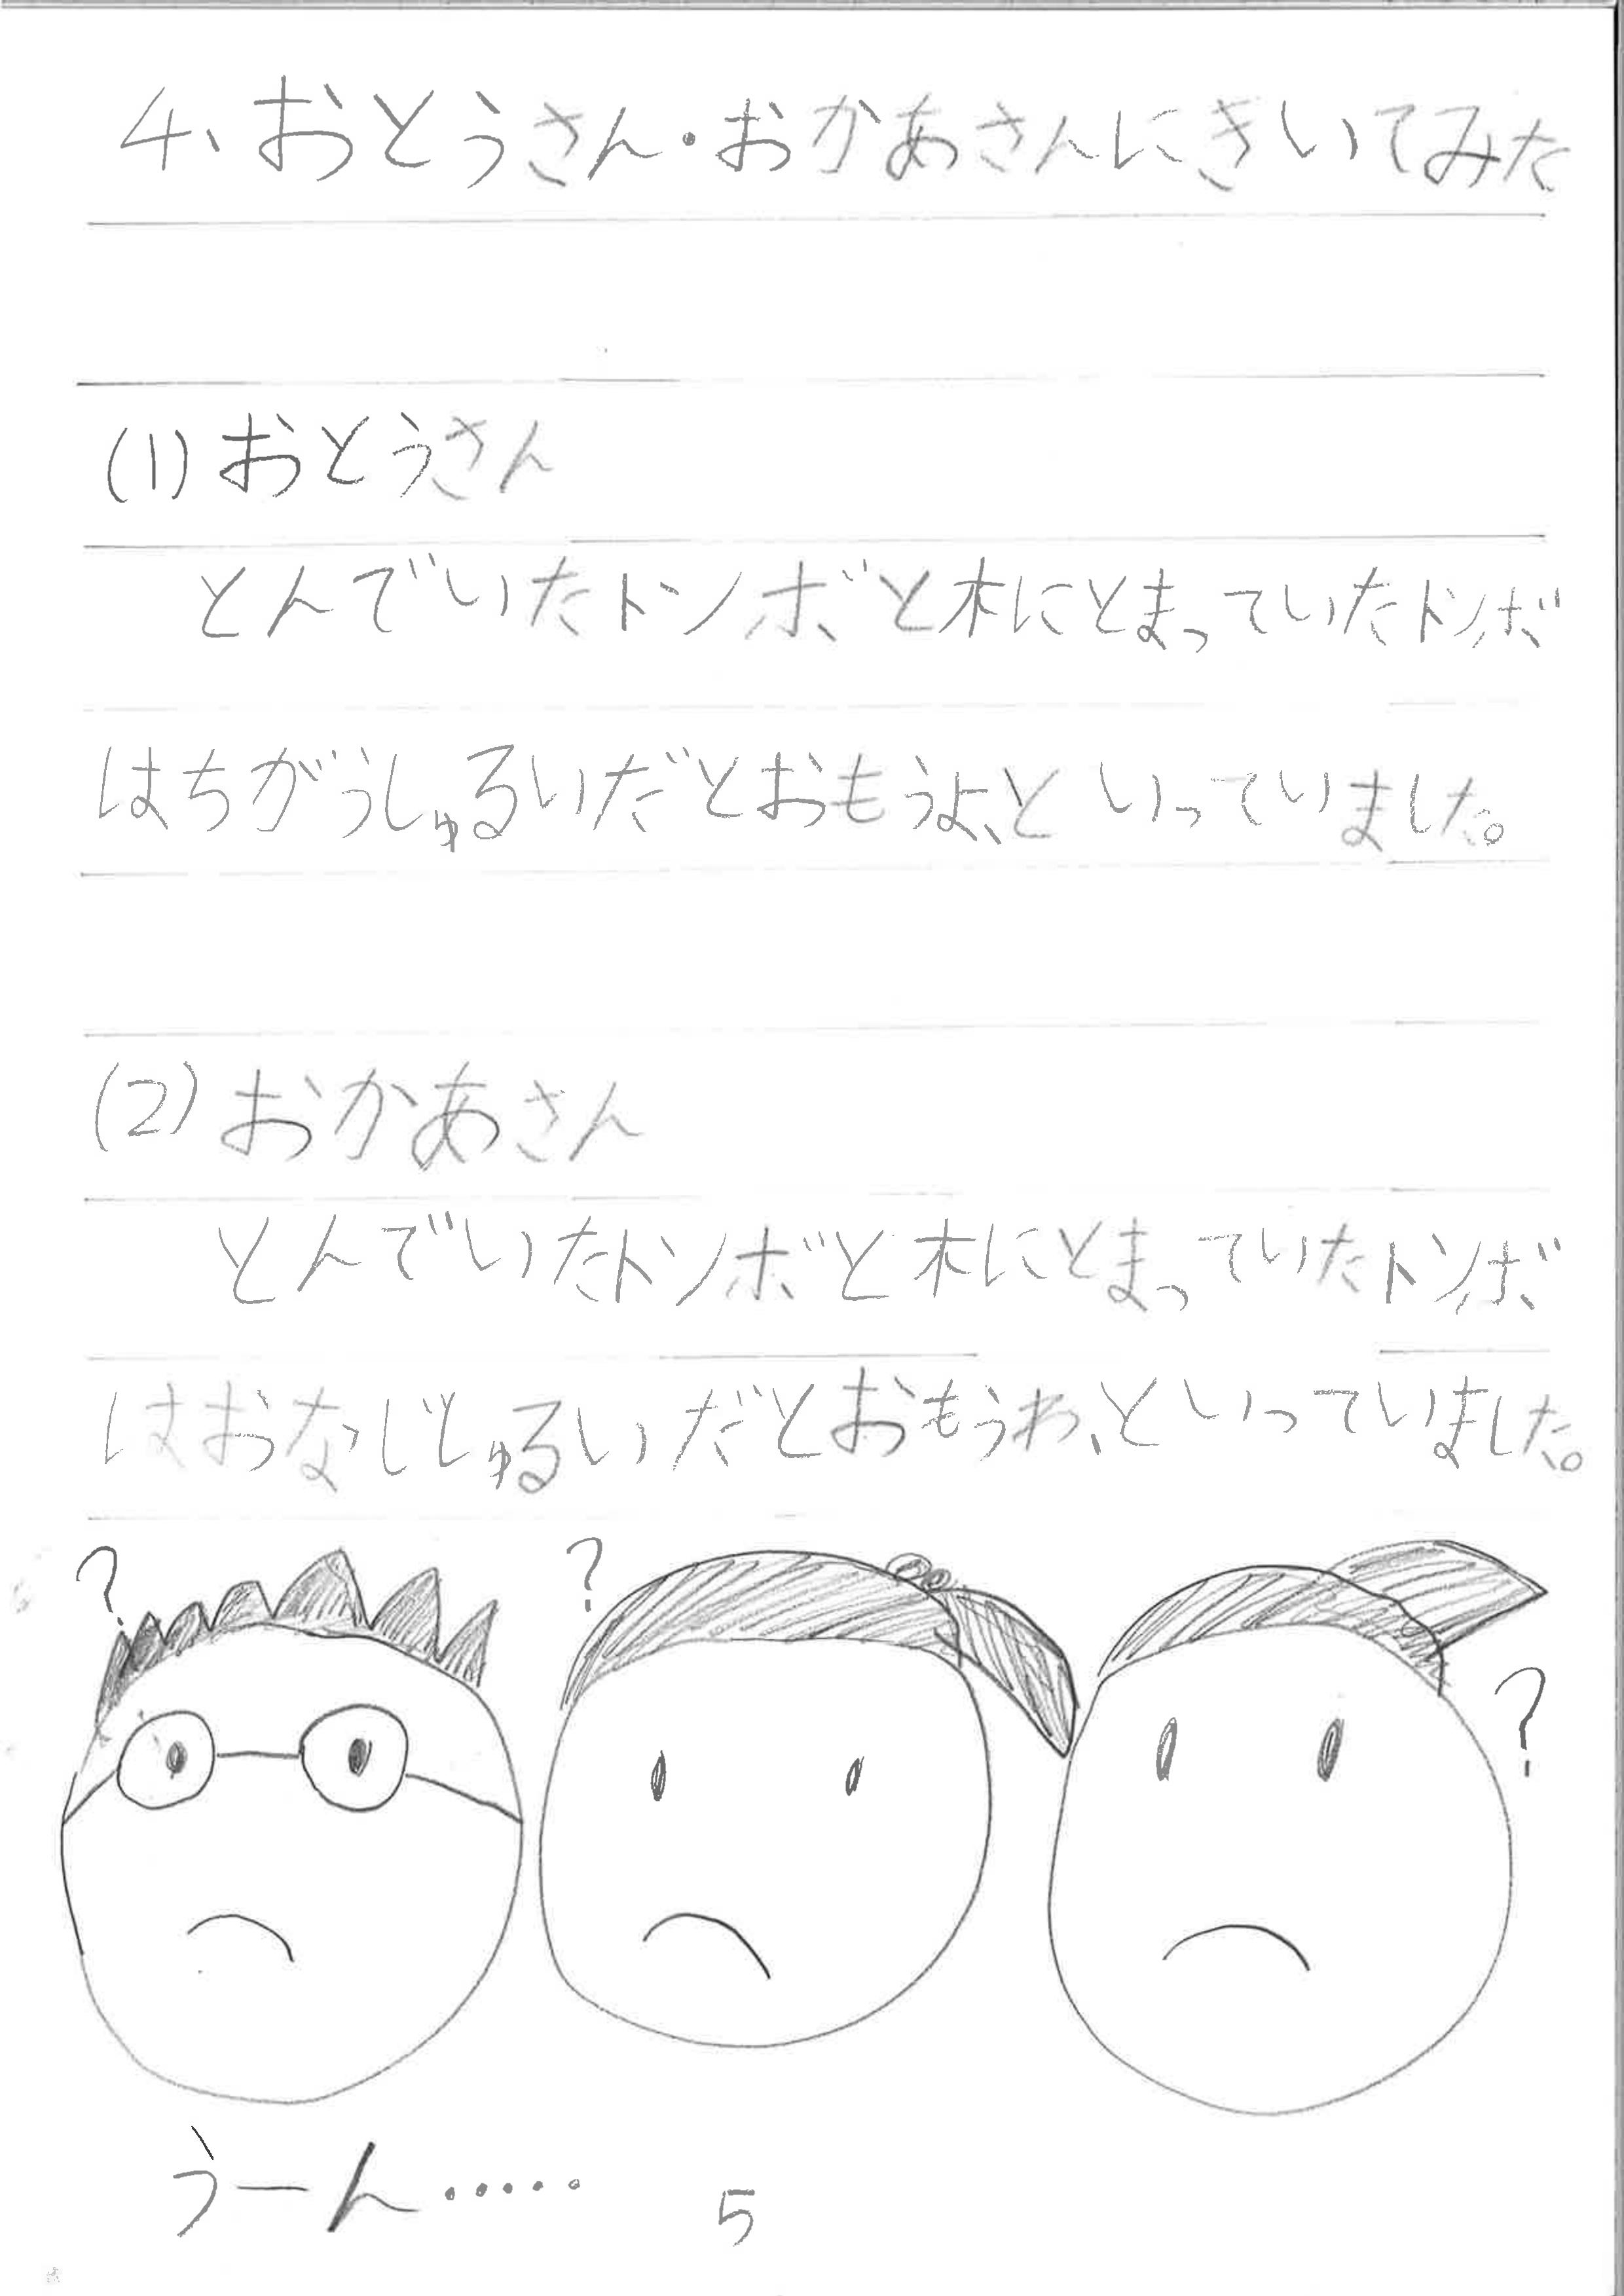 4、おとうさん・おかあさんにきいてみた
(1)おとうさん
とんでいたトンボと木にとまっていたトンボ
はちがうしゅるいだとおもうよ、といっていました。
(2)おかあさん
とんでいたトンボと木にとまっていたトンボ
はおなじしゅるいだとおもうわ、といっていました。
? ? ?
うーん・・・・・
5